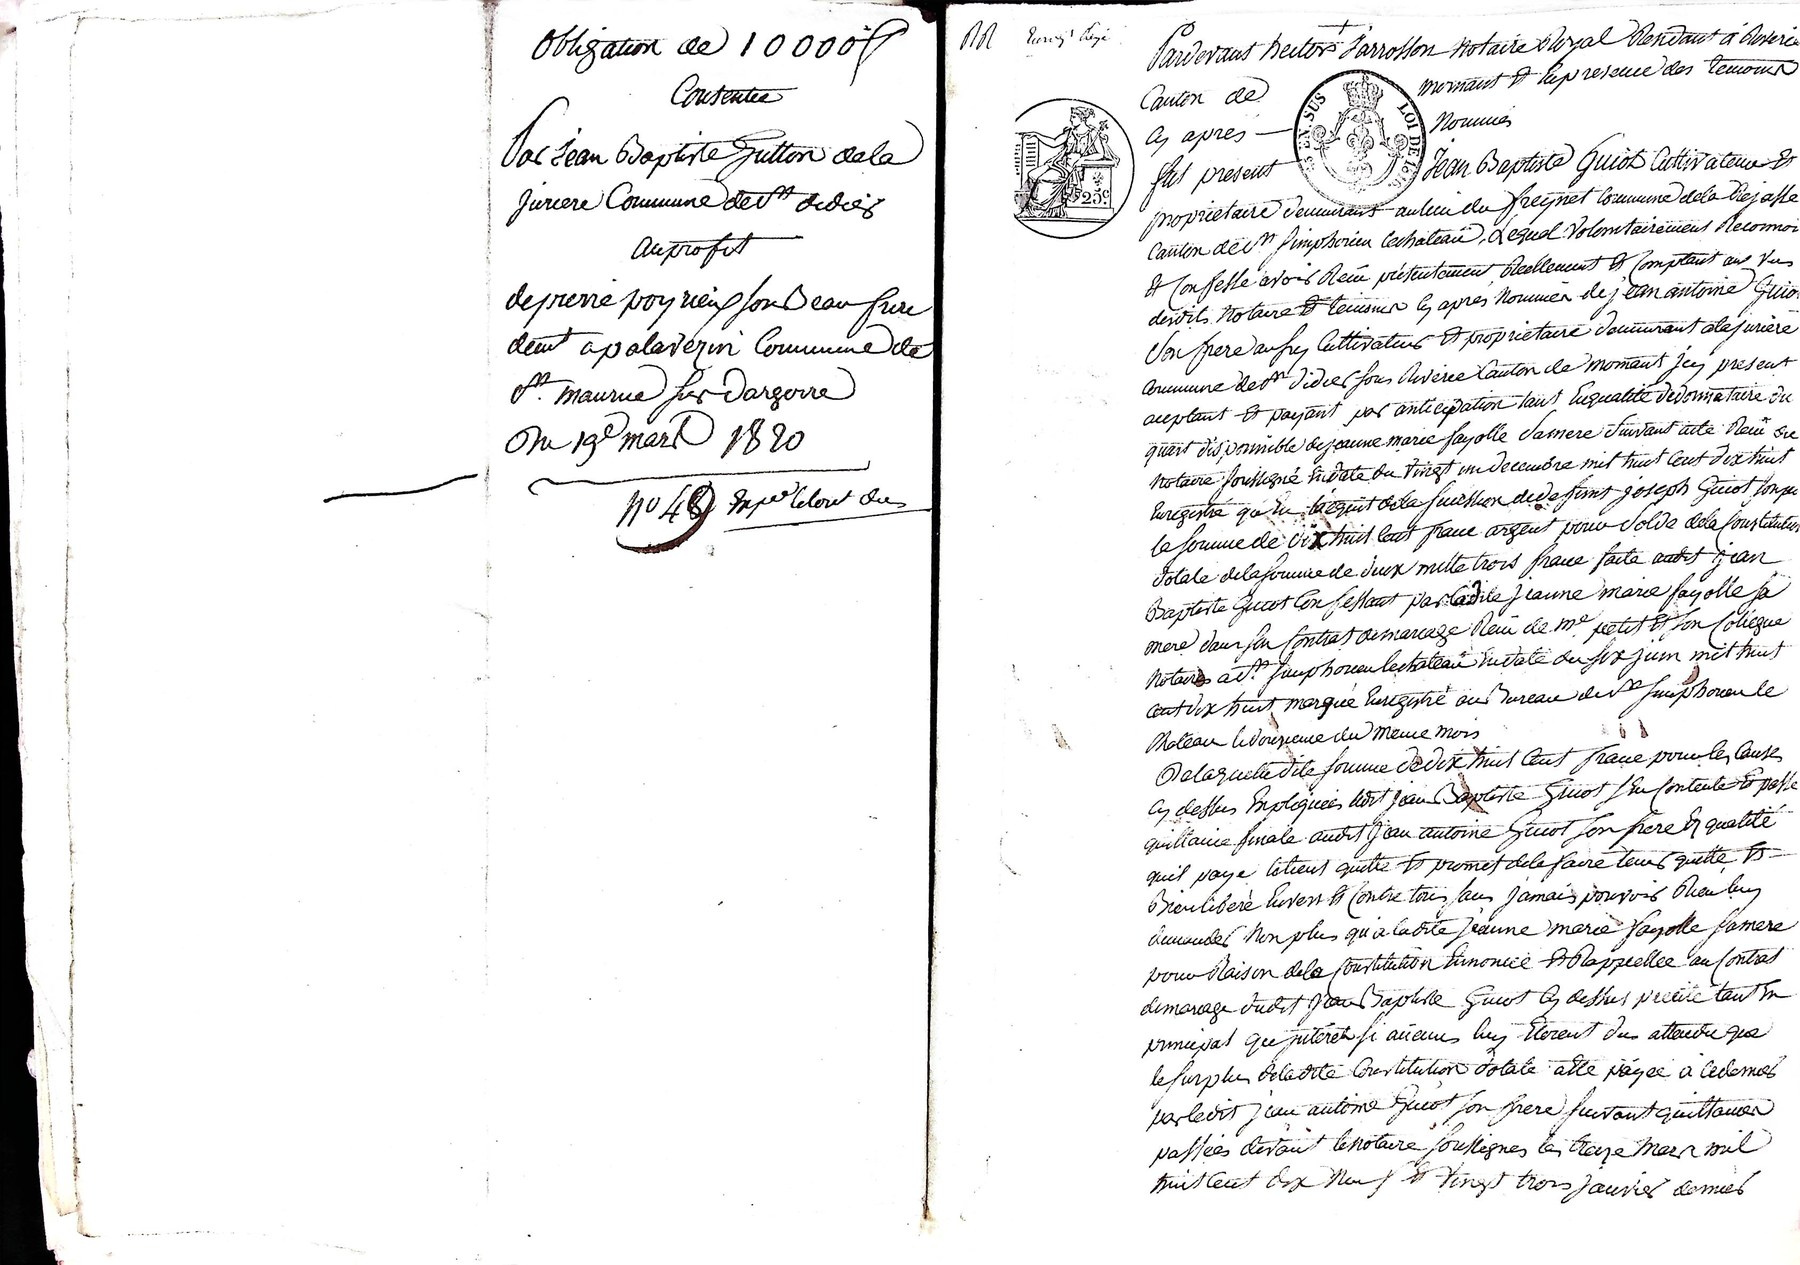 Obligation de 10000f
Consentie
Par Jean Baptiste Gutton de la
juriere Commune de St didier
au profit
de pierre poyrieux son Beau frere
demt a palaverin Commune de
St. maurice sur dargoire
Du 19e mars 1820
No 48
RR Enregt
Pardevant hector farrosson Notaire Royal Residant à Riverie
Canton de mornant Et En presence des temoins
Cy après Nommés
fut present Jean Baptiste Guiot Cultivateur Et
proprietaire demeurant au lieu du freynet Commune de la Rajasse
Canton de St Simphorien le chateau, Lequel Volontairement Reconnoi
Et Confesse avoir Reçu présentement Reellement Et Comptant aux vus
desdits Notaire Et temoins Cy après Nommés de jean antoine Guiot
Son frere aussy Cultivateur Et proprietaire demeurant a la juriere
Commune de St didier sous Riverie Canton de mornant jcy present
acceptant Et payant par anticipation tant En qualité de donnataire du
quart disponnible de jeanne marie fayolle Sa mere Suivant acte Reçu du
Notaire soussigné En date du vingt un decembre mil huit Cent dix huit
Enregistré qu'En l'acquit de la succession de deffunt joseph Guiot son pere
la somme de dix huit Cent franc argent pour Solde de la Constitution
dotale de la somme de deux mille trois franc faite audit jean
Baptiste Guiot Confessant par ladite jeanne marie fayolle sa
mere dans son Contrat de mariage Reçu de me petit Et son Collegue
Notaires a St. Simphorien le chateau En date du six juin mil huit
Cent dix huit marqué Enregistré au Bureau de St Simphorien le
Chateau le douzieme du meme mois
De laquelle dite somme de dix huit Cent franc pour les Causes
Cy dessus Expliquées ledit jean Baptiste Guiot s'en Contente Et passe
quittance finale audit jean antoine Guiot son frere En qualité
quil paye le tient quitte Et promet de le faire tenir quitte Et
Bien libéré Envers Et Contre tous sans jamais pouvoir Rien luy
demander Non plus qu'a ladite jeanne marie fayolle sa mere
pour Raison de la Constitution Ennoncée Et Rappellée au Contrat
de mariage dudit jean Baptiste Guiot Cy dessus précité tant En
principal que jnterets si aucuns luy Etoient dus attendu que
le surplus de ladite Constitution dotale a Eté payée à ce dernier
par ledit jean antoine Guiot son frere suivant quittances
passées devant le notaire soussignés les treize mars mil
huit Cent dix Neuf Et vingt trois janvier dernier